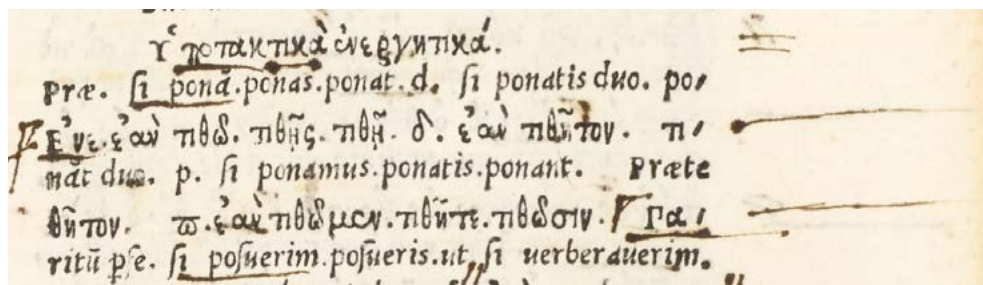 Ὑποτακτικὰ ἐνεργητικά.
Præ. si ponā.ponas.ponat.d. si ponatis duo. po,
Ἐνε.ἐὰν τιθῶ. τιθῇς. τιθῇ. δ. ἐὰν τιθῆτον. τι,
nāt duo. p. si ponamus.ponatis.ponant. Præte
θῆτον. π.ἐὰν τιθῶμεν.τιθῆτε.τιθῶσιν. Γα,
ritū pfe. si posuerim.posueris.ut si uerberauerim.